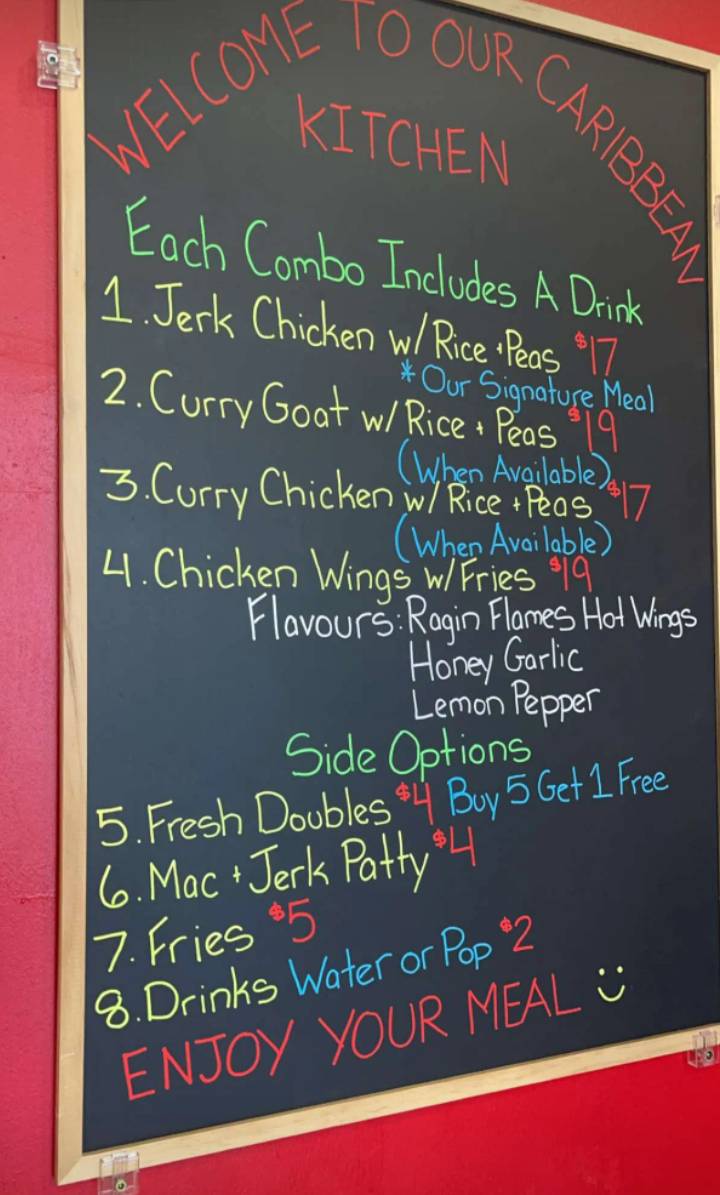 WELCOME TO OUR CARIBBEAN
KITCHEN
Each Combo Includes A Drink
1. Jerk Chicken w/ Rice + Peas $17
* Our Signature Meal
2. Curry Goat w/ Rice + Peas $19
(When Available)
3. Curry Chicken w/ Rice + Peas $17
(When Available)
4. Chicken Wings w/ Fries $19
Flavours: Ragin Flames Hot Wings
Honey Garlic
Lemon Pepper
Side Options
5. Fresh Doubles $4 Buy 5 Get 1 Free
6. Mac + Jerk Patty $4
7. Fries $5
8. Drinks Water or Pop $2
ENJOY YOUR MEAL